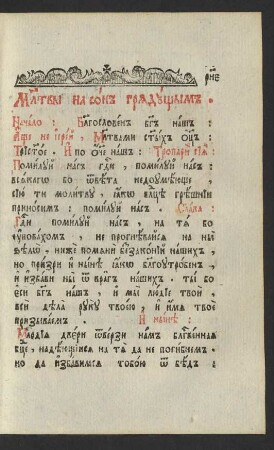 рн҃е
Мл҃твы на сонъ грѧдꙋщымъ.
Начало: Благословенъ бг҃ъ нашъ:
Аще не іерей, Мл҃твами ст҃ыхъ ѻц҃ъ:
Трист҃ое. И по ѻ҃че нашъ: Тропари сїѧ:
Помилꙋй насъ гд҃и, помилꙋй насъ:
всѧкагѡ бо ѿвѣта недоꙋмѣюще,
сїю ти молитвꙋ, ѩкѡ влⷣцѣ грѣшнїи
приносимъ: помилꙋй насъ. Слава:
Гд҃и помилꙋй насъ, на тѧ бо
ᲂуповахомъ, не прогнѣвайсѧ на ны
ѕѣлѡ, ниже помѧни беззаконїй нашихъ,
но призри и нынѣ ѩкѡ благоꙋтробенъ,
и избави ны ѿ врагъ нашихъ. ты бо
еси бг҃ъ нашъ, и мы людїе твои,
вси дѣла рꙋкꙋ твоєю, и имѧ твое
призываемъ. И нынѣ:
Милосердїѧ двери ѿверзи намъ благⷭ҇венная
бцⷣе, надѣющїисѧ на тѧ да не погибнемъ.
но да избавимсѧ тобою ѿ бѣдъ: